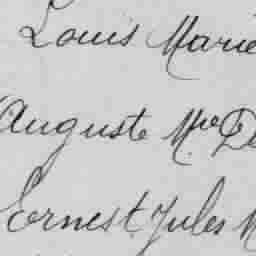 Louis Marie
Auguste Mve De
Ernest Jules M